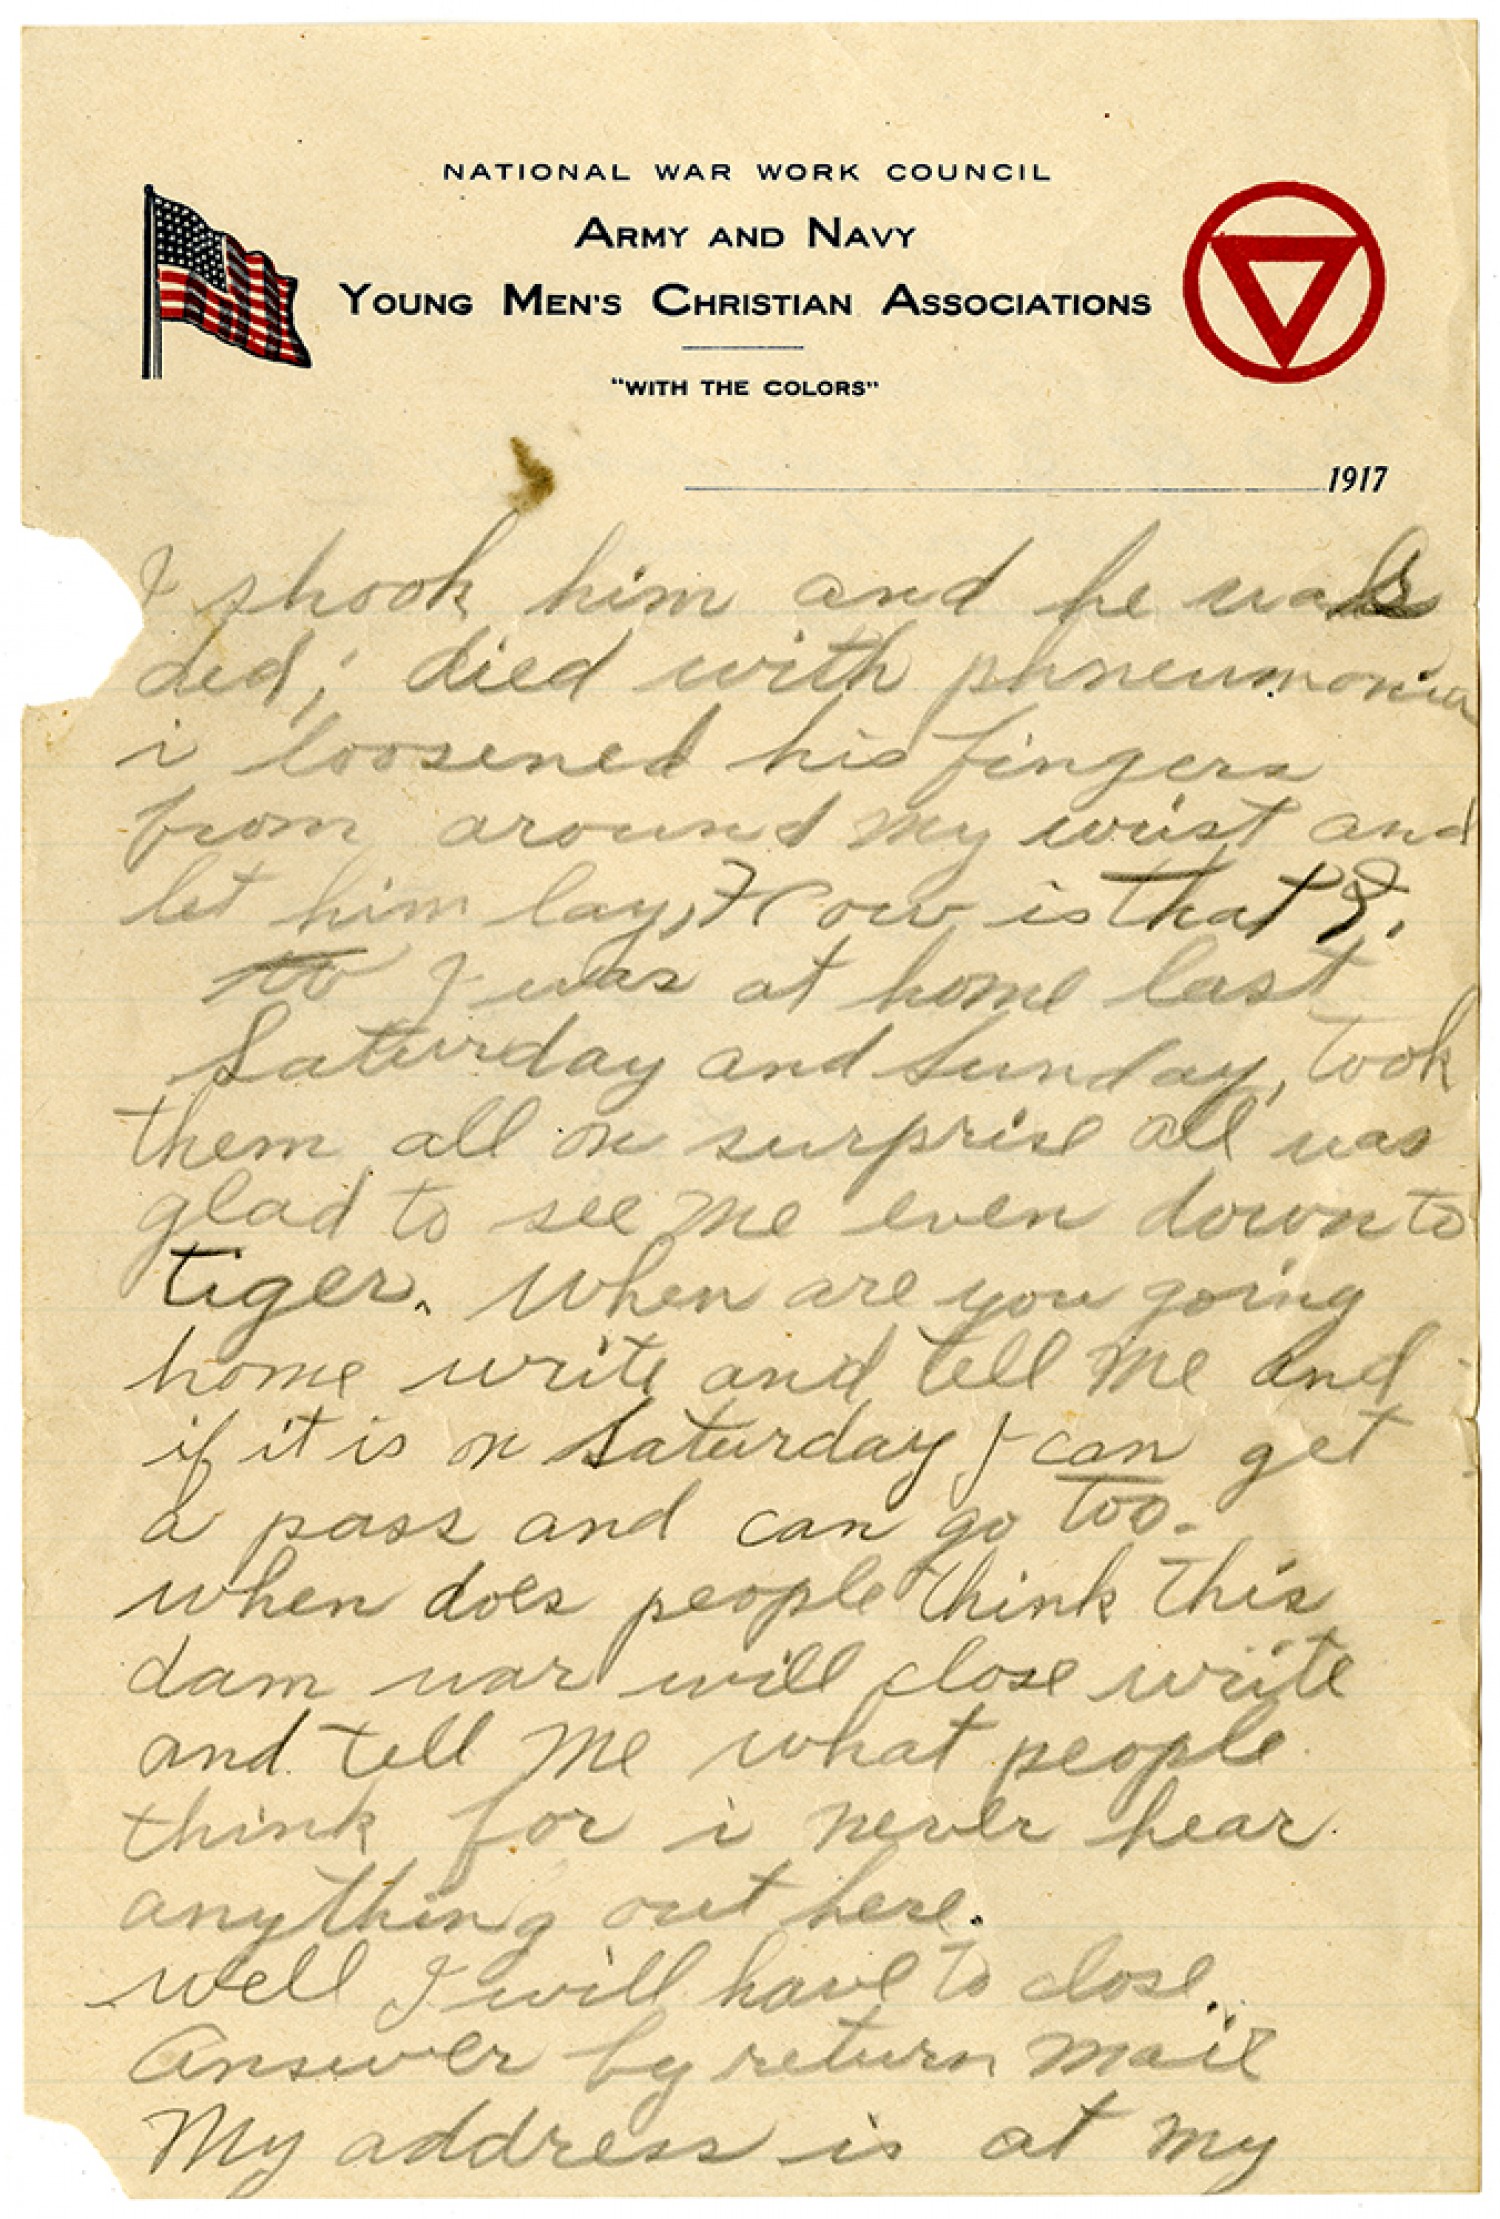 NATIONAL WAR WORK COUNCIL
ARMY AND NAVY
YOUNG MEN'S CHRISTIAN ASSOCIATIONS
"WITH THE COLORS"
1917
I shook him and he was
ded; died with phneumonia
i loosened his fingers
from around my wrist and
let him lay, How is that?.
to I was at home last
Saturday and Sunday, took
them all on surprise all was
glad to see me even down to
tiger. When are you going
home write and tell me and
if it is on Saturday I can get
a pass and can go too.
when does people think this
dam war will close write
and tell me what people
think for i never hear
anything out here.
well I will have to close.
Answer by return mail
My address is at my